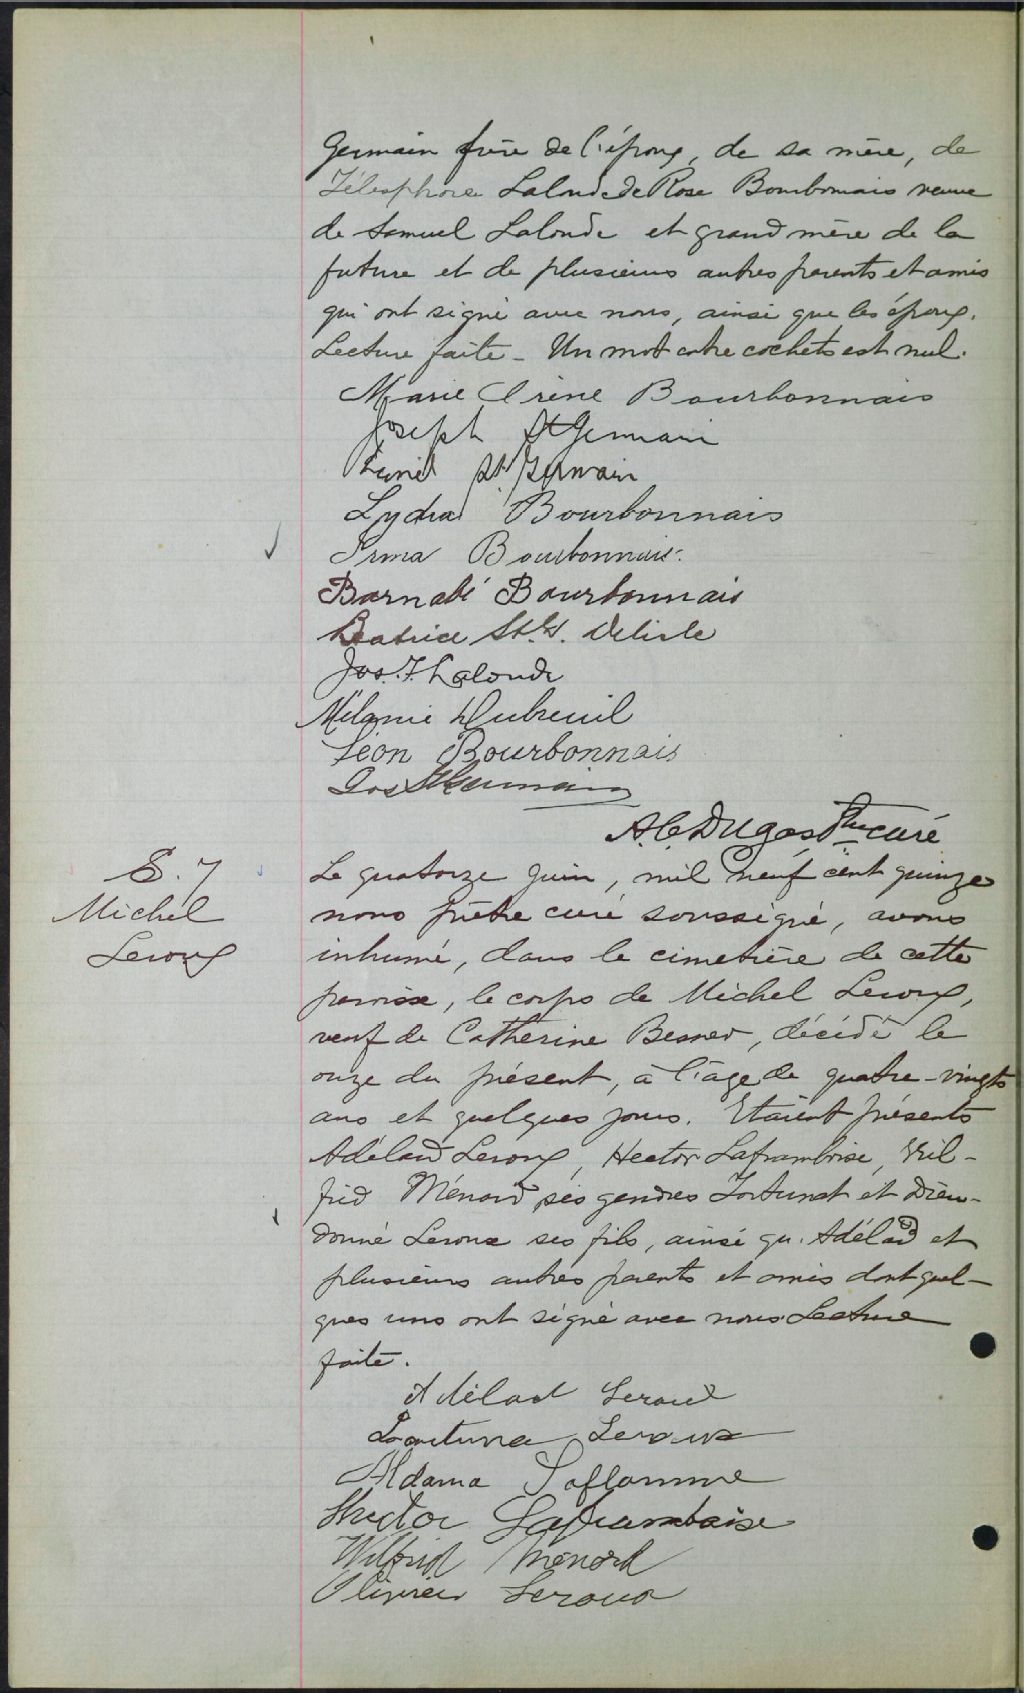 Germain frère de l'époux, de sa mère, de
Télesphore Lalonde de Rose Bourbonnais veuve
de Samuel Lalonde et grand mère de la
future et de plusieurs autres parents et amis
qui ont signé avec nous, ainsi que les époux.
Lecture faite - Un mot entre crochets est nul.
Marie Irène Bourbonnais
Joseph St Germain
St Germain
Lydia Bourbonnais
Irma Bourbonnais.
Barnabé Bourbonnais
Beatrice St.G. Delisle
Jos. T. Lalonde
Mélanie Dubreuil
Léon Bourbonnais
Jos St Germain
A.C. Dugas Ptre curé
S. 7
Michel
Leroux
Le quatorze juin, mil neuf cent quinze
nous prêtre curé soussigné, avons
inhumé, dans le cimetière de cette
paroisse, le corps de Michel Leroux,
veuf de Catherine Besner, décédé le
onze du présent, à l'âge de quatre-vingts
ans et quelques jours. Etaient présents
Adélard Leroux, Hector Laframboise, Wil-
frid Ménard ses gendres Fortunat et Dieu-
donné Leroux ses fils, ainsi qu. Adélard et
plusieurs autres parents et amis dont quel-
ques uns ont signé avec nous Lecture
faite.
Adélard Leroux
Leroux
Aldama Laflamme
Hector Laframboise
Wilfrid Menard
Olivier Leroux